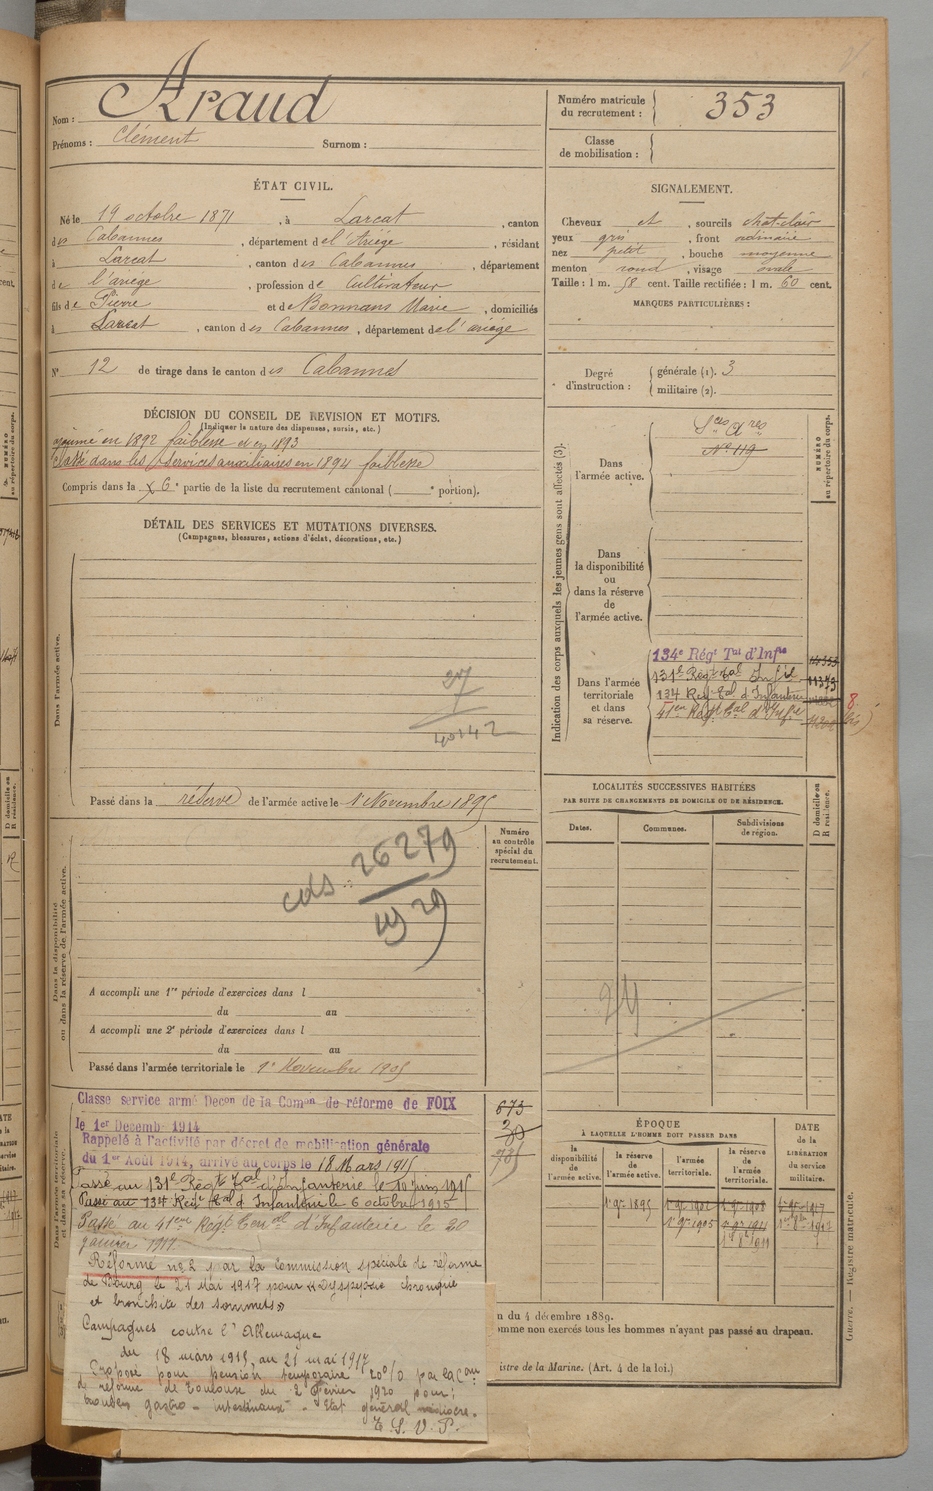 Nom : Araud
Prénoms : Clément Surnom :
Numéro matricule du recrutement : 353
Classe de mobilisation :
ÉTAT CIVIL.
Né le 19 octobre 1871, à Larcat, canton
des Cabannes, département de l'Ariège, résidant
à Larcat, canton des Cabannes, département
de l'ariège, profession de Cultivateur
fils de Pierre et de Bonnans Marie, domiciliés
à Larcat, canton des Cabannes, département de l'ariège
N° 12 de tirage dans le canton des Cabannes
SIGNALEMENT.
Cheveux et, sourcils chat-clair
yeux gris, front ordinaire
nez petit, bouche moyenne
menton rond, visage ovale
Taille : 1 m. 58 cent. Taille rectifiée : 1 m. 60 cent.
MARQUES PARTICULIÈRES :
Degré d'instruction : générale (1). 3
militaire (2).
DÉCISION DU CONSEIL DE REVISION ET MOTIFS.
(Indiquer la nature des dispenses, sursis, etc.)
ajourné en 1892 faiblesse et en 1893
Classé dans les services auxiliaires en 1894 faiblesse
Compris dans la 6e partie de la liste du recrutement cantonal ( e portion).
DÉTAIL DES SERVICES ET MUTATIONS DIVERSES.
(Campagnes, blessures, actions d'éclat, décorations, etc.)
Dans l'armée active.
27
40142
Passé dans la réserve de l'armée active le 1er Novembre 1895
Dans la disponibilité ou dans la réserve de l'armée active.
Numéro au contrôle spécial du recrutement.
cds : 26279
1929
A accompli une 1re période d'exercices dans l
du au
A accompli une 2e période d'exercices dans l
du au
Passé dans l'armée territoriale le 1er Novembre 1905
Dans l'armée territoriale et dans sa réserve.
Classe service armé Decon de la Comon de réforme de FOIX
le 1er Decembre 1914
Rappelé à l'activité par décret de mobilisation générale
du 1er Août 1914, arrivé au corps le 18 Mars 1915
Passé au 131e Régt Tal d'Infanterie le 10 juin 1915
Passé au 134 Regt Tal d'Infanterie le 6 octobre 1915
Passé au 41eme Régt Terral d'Infanterie le 20
janvier 1917.
Réformé no 2 par la commission spéciale de réforme
de Bourg le 21 Mai 1917 pour « Dyspepsie chronique
et bronchite des sommets »
Campagnes contre l'Allemagne
du 18 mars 1915, au 21 mai 1917
Proposé pour pension temporaire 20% par la Con
de réforme de Toulouse du 2 Février 1920 pour :
troubles gastro-intestinaux - Etat général médiocre.
T. S. V. P.
673
785
Indication des corps auxquels les jeunes gens sont affectés (3).
NUMÉRO au répertoire du corps.
Dans l'armée active.
Sces Ares
N° 119
Dans la disponibilité ou dans la réserve de l'armée active.
Dans l'armée territoriale et dans sa réserve.
134e Régt Tal d'Infie
131e Régt Tal Infie 11373
134 Regt Tal d'Infanterie
41em Régt Tal d'Infie
LOCALITÉS SUCCESSIVES HABITÉES
PAR SUITE DE CHANGEMENTS DE DOMICILE OU DE RÉSIDENCE.
Dates. Communes. Subdivisions de région.
D domicile ou R résidence.
24
ÉPOQUE
À LAQUELLE L'HOMME DOIT PASSER DANS
la disponibilité de l'armée active.
la réserve de l'armée active.
l'armée territoriale.
la réserve de l'armée territoriale.
DATE de la LIBÉRATION du service militaire.
1er 9bre 1895
1er 9bre 1905
n du 4 décembre 1889.
omme non exercés tous les hommes n'ayant pas passé au drapeau.
istre de la Marine. (Art. 4 de la loi.)
Guerre. — Registre matricule.